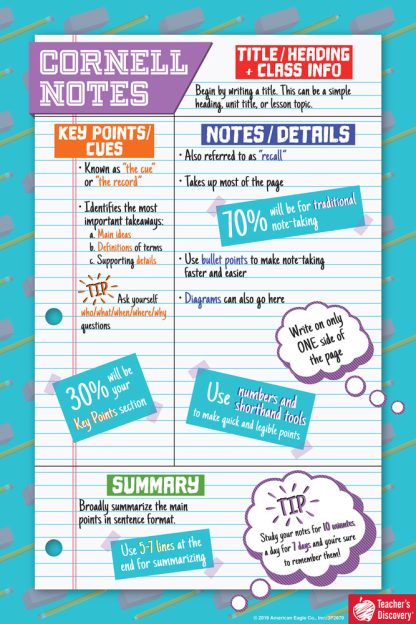 CORNELL
NOTES
TITLE/HEADING
+ CLASS INFO
Begin by writing a title. This can be a simple
heading, unit title, or lesson topic.
KEY POINTS/
CUES
• Known as "the cue"
or "the record"
• Identifies the most
important takeaways:
a. Main ideas
b. Definitions of terms
c. Supporting details
TIP Ask yourself
who/what/when/where/why
questions
30% will be
your
Key Points section
NOTES/DETAILS
• Also referred to as "recall"
• Takes up most of the page
70% will be for traditional
note-taking
• Use bullet points to make note-taking
faster and easier
• Diagrams can also go here
Write on only
ONE side of
the page
Use numbers and
shorthand tools
to make quick and legible points
SUMMARY
Broadly summarize the main
points in sentence format.
Use 5-7 lines at the
end for summarizing
TIP
Study your notes for 10 minutes
a day for 7 days, and you're sure
to remember them!
© 2019 American Eagle Co., Inc.
Teacher's
Discovery